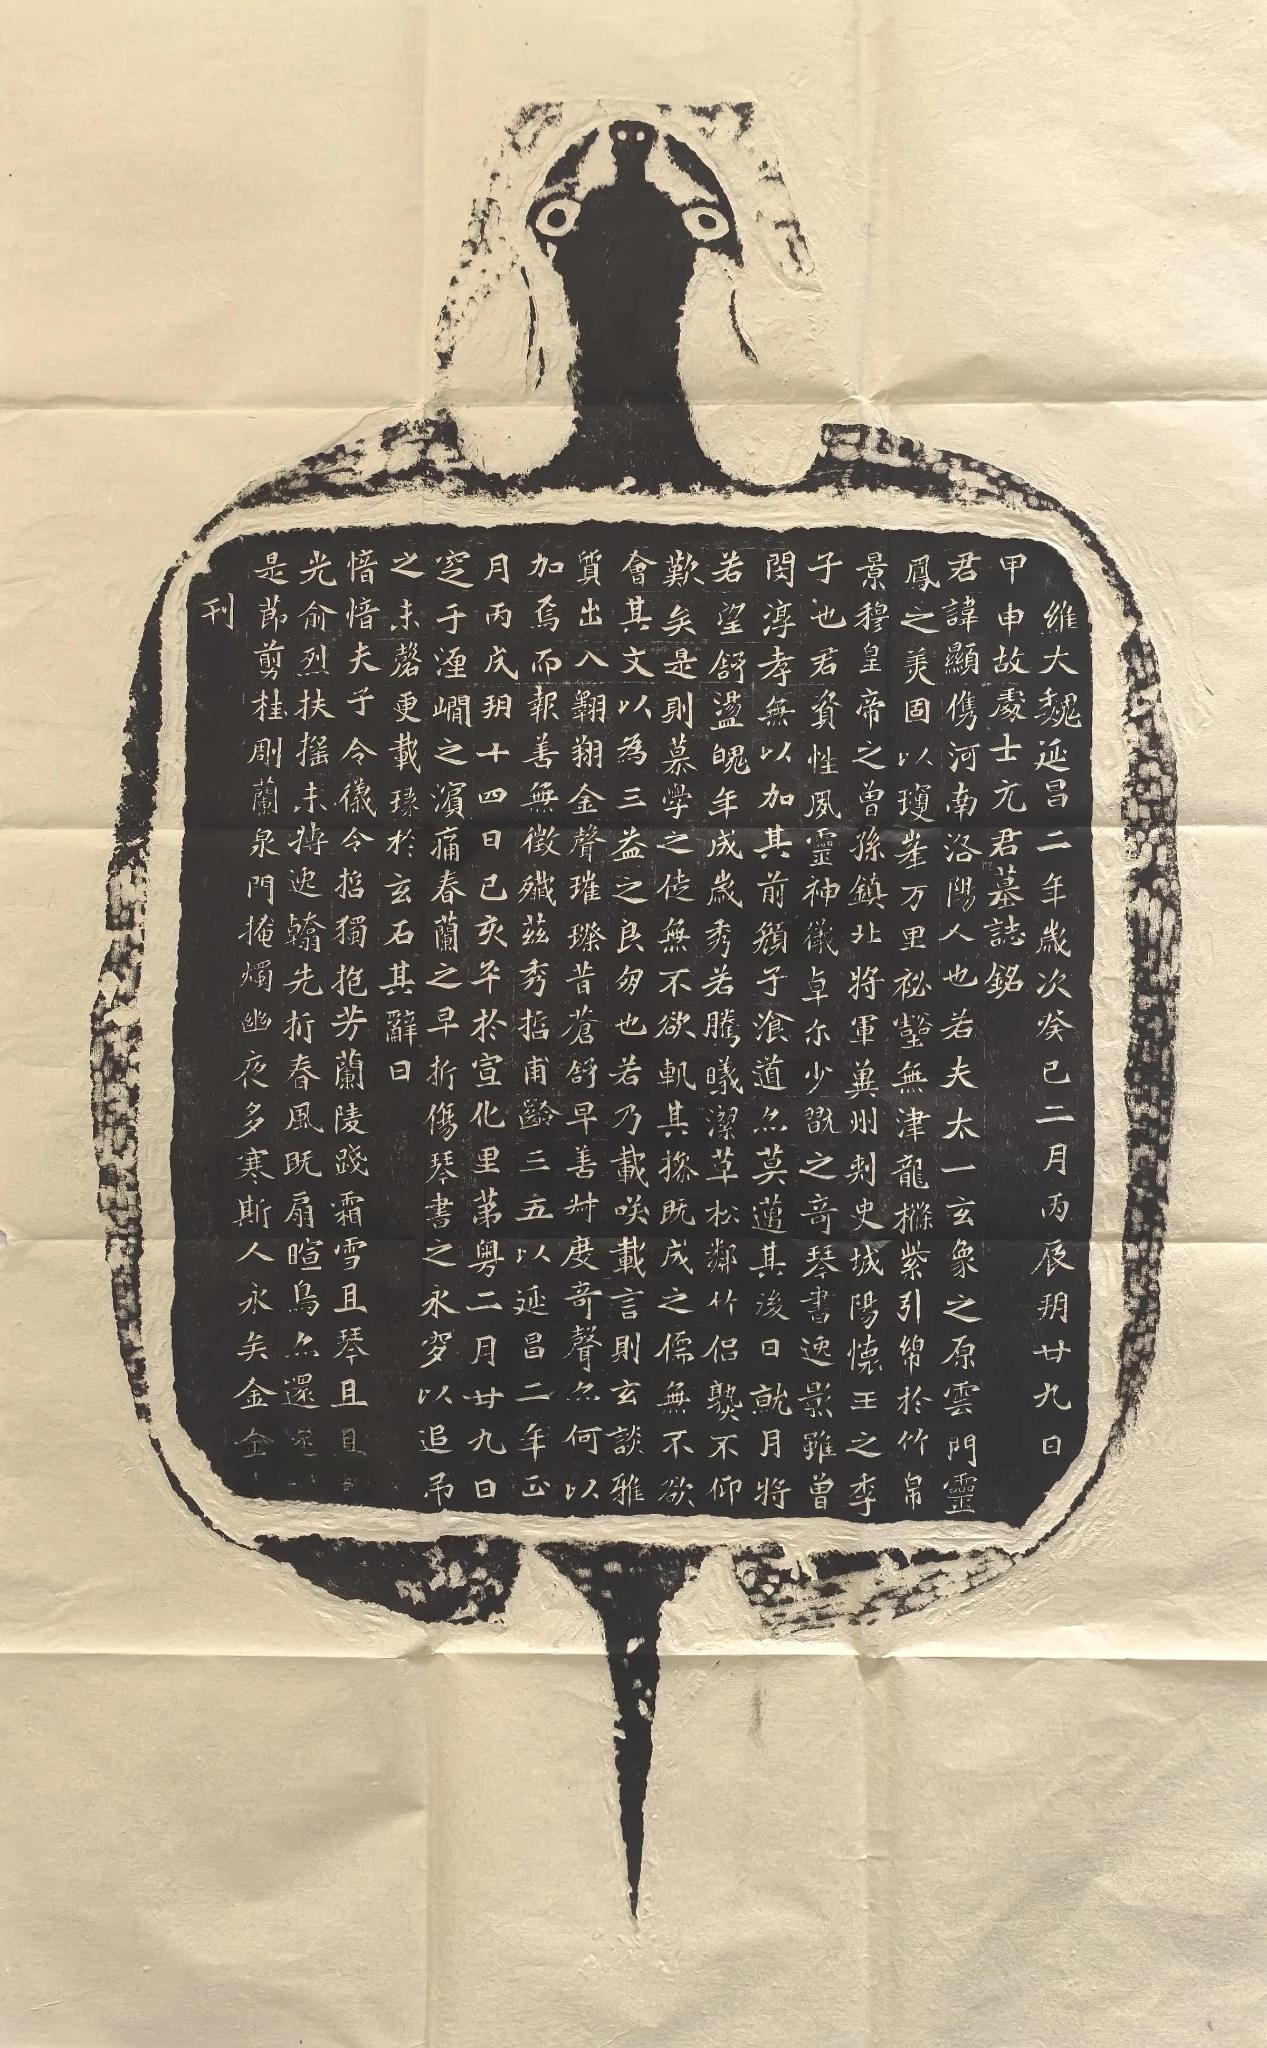 維大魏延昌二年歲次癸巳二月丙辰玥廿九日
甲申故處士元君墓誌銘
君諱顯儁河南洛陽人也若夫太一玄象之原雲門靈
鳳之美固以瓊峯万里祕壑無津龍檦紫引綿於竹帛
景穆皇帝之曾孫鎮北將軍冀州刺史城陽懷王之季
子也君資性夙靈神儀卓尒少翫之奇琴書逸影雖曾
閔淳孝無以加其前顏子飡道亦莫邁其後日就月將
若望舒盪魄年成歲秀若騰曦潔草松鄰竹侶熟不仰
歎矣是則慕學之徒無不欲軌其操既成之儒無不欲
會其文以為三益之良朋也若乃載咲載言則玄談雅
質出入翱翔金聲璀璨昔蒼舒早善叔度奇聲亦何以
加焉而報善無徵殲茲秀哲甫齡三五以延昌二年正
月丙戌玥十四日己亥卒於宣化里第粵二月廿九日
窆于瀍澗之濱痛春蘭之早折傷琴書之永穸以追弔
之未罄更載瑑於玄石其辭曰
愔愔夫子令儀令哲獨抱芳蘭陵踐霜雪且琴且
光俞烈扶搖未摶逸翰先折春風既扇暄鳥亦還
是節剪桂彫蘭泉門掩燭幽夜多寒斯人永矣金
刊